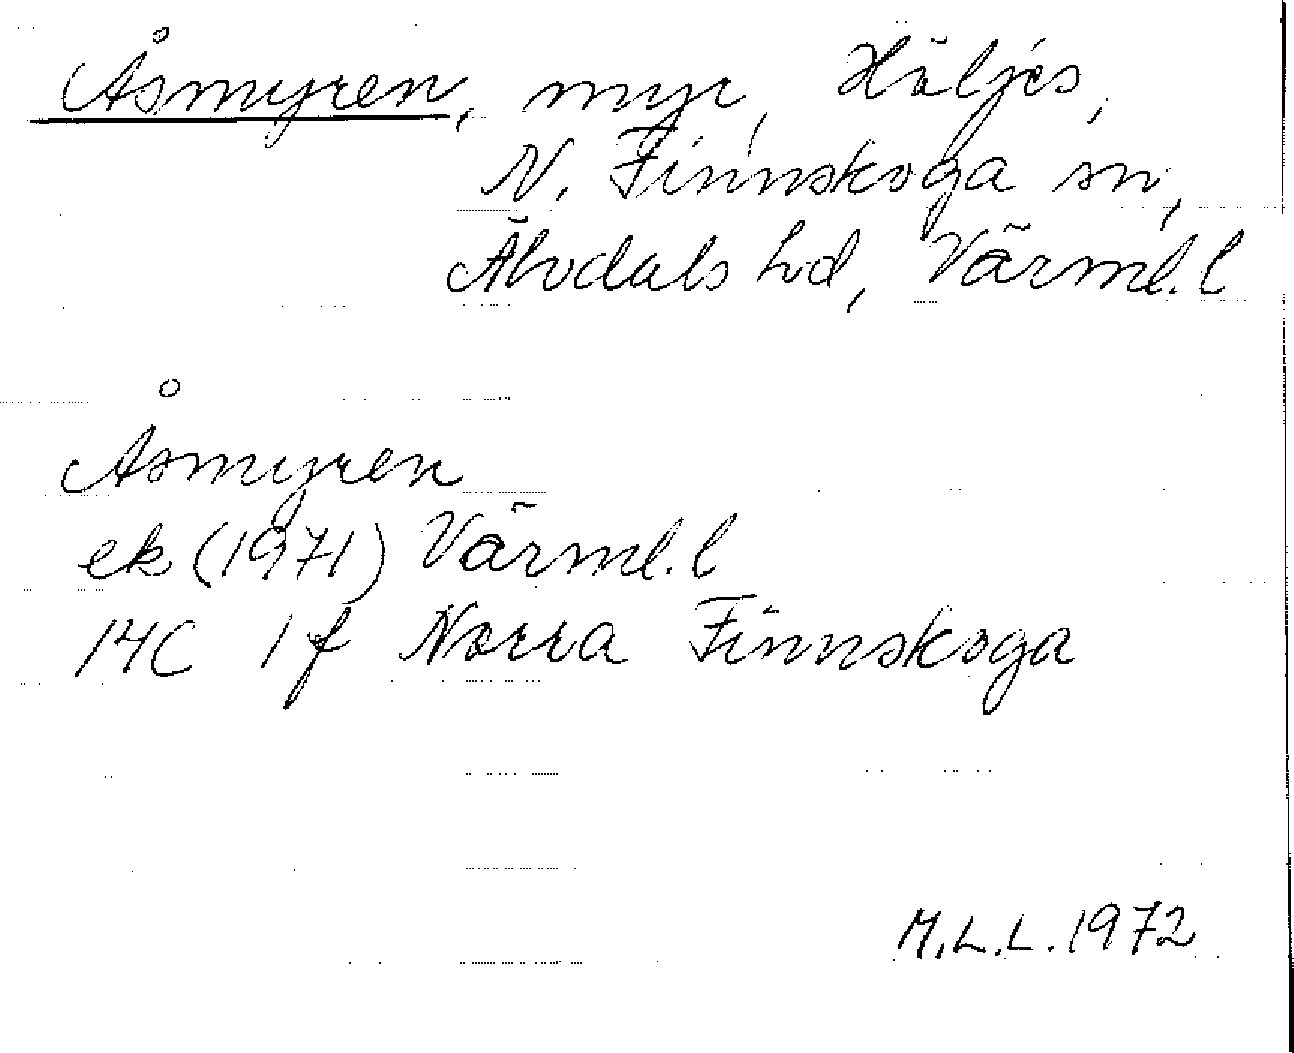 Åsmyren, myr, Höljes,
N. Finnskoga sn,
Älvdals hd, Värml. l
Åsmyren
ek (1971) Värml. l
14C 1f Norra Finnskoga
M.L.L. 1972